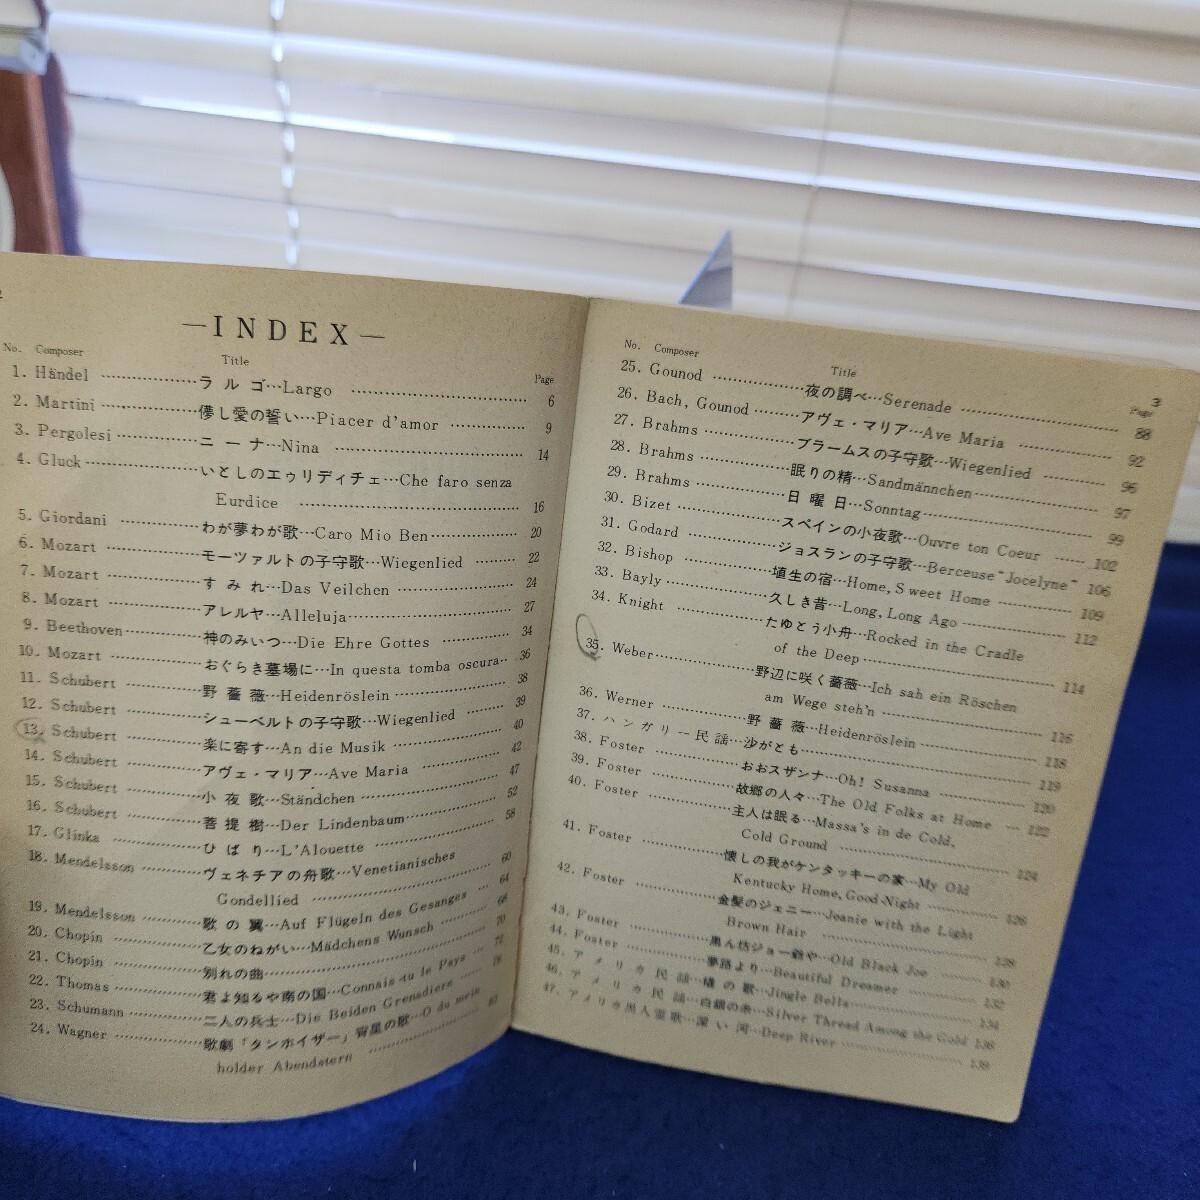 2
—INDEX—
No. Composer Title Page
1. Händel ……… ラルゴ…Largo ……… 6
2. Martini ……… 儚し愛の誓い…Piacer d'amor ……… 9
3. Pergolesi ……… ニーナ…Nina ……… 14
4. Gluck ……… いとしのエゥリディチェ…Che faro senza
Eurdice ……… 16
5. Giordani ……… わが夢わが歌…Caro Mio Ben ……… 20
6. Mozart ……… モーツァルトの子守歌…Wiegenlied ……… 22
7. Mozart ……… すみれ…Das Veilchen ……… 24
8. Mozart ……… アレルヤ…Alleluja ……… 27
9. Beethoven ……… 神のみいつ…Die Ehre Gottes ……… 34
10. Mozart ……… おぐらき墓場に…In questa tomba oscura … 36
11. Schubert ……… 野薔薇…Heidenröslein ……… 38
12. Schubert ……… シューベルトの子守歌…Wiegenlied ……… 39
13. Schubert ……… 楽に寄す…An die Musik ……… 40
14. Schubert ……… アヴェ・マリア…Ave Maria ……… 42
15. Schubert ……… 小夜歌…Ständchen ……… 47
16. Schubert ……… 菩提樹…Der Lindenbaum ……… 52
17. Glinka ……… ひばり…L'Alouette ……… 58
18. Mendelsson ……… ヴェネチアの舟歌…Venetianisches
Gondellied ……… 60
19. Mendelsson ……… 歌の翼…Auf Flügeln des Gesanges … 64
20. Chopin ……… 乙女のねがい…Mädchens Wunsch ……… 68
21. Chopin ……… 別れの曲 ……… 70
22. Thomas ……… 君よ知るや南の国…Connais tu le Pays … 72
23. Schumann ……… 二人の兵士…Die Beiden Grenadiere … 76
24. Wagner ……… 歌劇「タンホイザー」宵星の歌…O du mein
holder Abendstern ……… 83
3
No. Composer Title Page
25. Gounod ……… 夜の調べ…Serenade ……… 88
26. Bach, Gounod ……… アヴェ・マリア…Ave Maria ……… 92
27. Brahms ……… ブラームスの子守歌…Wiegenlied ……… 96
28. Brahms ……… 眠りの精…Sandmännchen ……… 97
29. Brahms ……… 日曜日…Sonntag ……… 99
30. Bizet ……… スペインの小夜歌…Ouvre ton Coeur ……… 102
31. Godard ……… ジョスランの子守歌…Berceuse "Jocelyne" 106
32. Bishop ……… 埴生の宿…Home, Sweet Home ……… 109
33. Bayly ……… 久しき昔…Long, Long Ago ……… 112
34. Knight ……… たゆとう小舟…Rocked in the Cradle
of the Deep ……… 114
35. Weber ……… 野辺に咲く薔薇…Ich sah ein Röschen
am Wege steh'n ……… 116
36. Werner ……… 野薔薇…Heidenröslein ……… 118
37. ハンガリー民謡…沙がとも ……… 119
38. Foster ……… おおスザンナ…Oh! Susanna ……… 120
39. Foster ……… 故郷の人々…The Old Folks at Home … 122
40. Foster ……… 主人は眠る…Massa's in de Cold,
Cold Ground ……… 124
41. Foster ……… 懐しの我がケンタッキーの家…My Old
Kentucky Home, Good-Night ……… 126
42. Foster ……… 金髪のジェニー…Jeanie with the Light
Brown Hair ……… 128
43. Foster ……… 黒ん坊ジョー爺や…Old Black Joe ……… 130
44. Foster ……… 夢路より…Beautiful Dreamer ……… 132
45. アメリカ民謡…橇の歌…Jingle Bells ……… 134
46. アメリカ民謡…白銀の糸…Silver Thread Among the Gold 136
47. アメリカ黒人霊歌…深い河…Deep River ……… 138